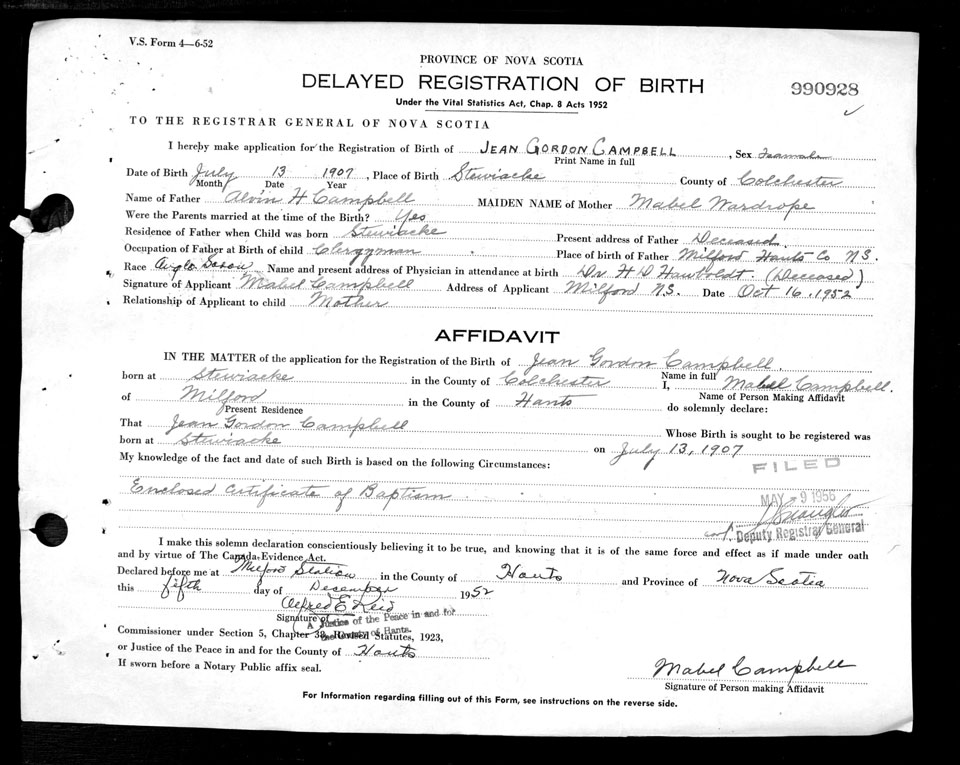 V.S. Form 4—6-52
PROVINCE OF NOVA SCOTIA
DELAYED REGISTRATION OF BIRTH
990928
Under the Vital Statistics Act, Chap. 8 Acts 1952
TO THE REGISTRAR GENERAL OF NOVA SCOTIA
I hereby make application for the Registration of Birth of JEAN GORDON CAMPBELL, Sex
Print Name in full
Date of Birth July 13 1907, Place of Birth Stewiacke County of Colchester
Month Date Year
Name of Father Alvin H Campbell MAIDEN NAME of Mother Mabel Wardrope
Were the Parents married at the time of the Birth? Yes
Residence of Father when Child was born Stewiacke Present address of Father Deceased.
Occupation of Father at Birth of child Clergyman Place of birth of Father Milford Hants Co N.S.
Race Anglo Saxon Name and present address of Physician in attendance at birth Dr H D (Deceased)
Signature of Applicant Mabel Campbell Address of Applicant Milford N.S. Date Oct 16, 1952
Relationship of Applicant to child Mother
AFFIDAVIT
IN THE MATTER of the application for the Registration of the Birth of Jean Gordon Campbell.
Name in full
born at Stewiacke in the County of Colchester I, Mabel Campbell.
Name of Person Making Affidavit
of Milford in the County of Hants do solemnly declare:
Present Residence
That Jean Gordon Campbell Whose Birth is sought to be registered was
born at Stewiacke on July 13, 1907
My knowledge of the fact and date of such Birth is based on the following Circumstances:
FILED
Enclosed Certificate of Baptism
MAY 9 1956
Deputy Registrar General
I make this solemn declaration conscientiously believing it to be true, and knowing that it is of the same force and effect as if made under oath
and by virtue of The Canada Evidence Act.
Declared before me at Milford Station in the County of Hants and Province of Nova Scotia
this fifth day of December 1952
Alfred E Reid
Signature of
A Justice of the Peace in and for
the County of Hants.
Commissioner under Section 5, Chapter 38, Revised Statutes, 1923,
or Justice of the Peace in and for the County of Hants
If sworn before a Notary Public affix seal.
Mabel Campbell
Signature of Person making Affidavit
For Information regarding filling out of this Form, see instructions on the reverse side.